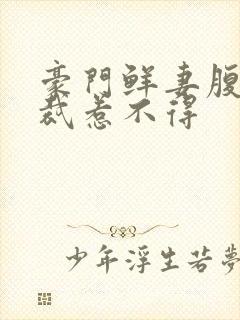 豪門鲜妻腹
裁惹不得
少年浮生若夢